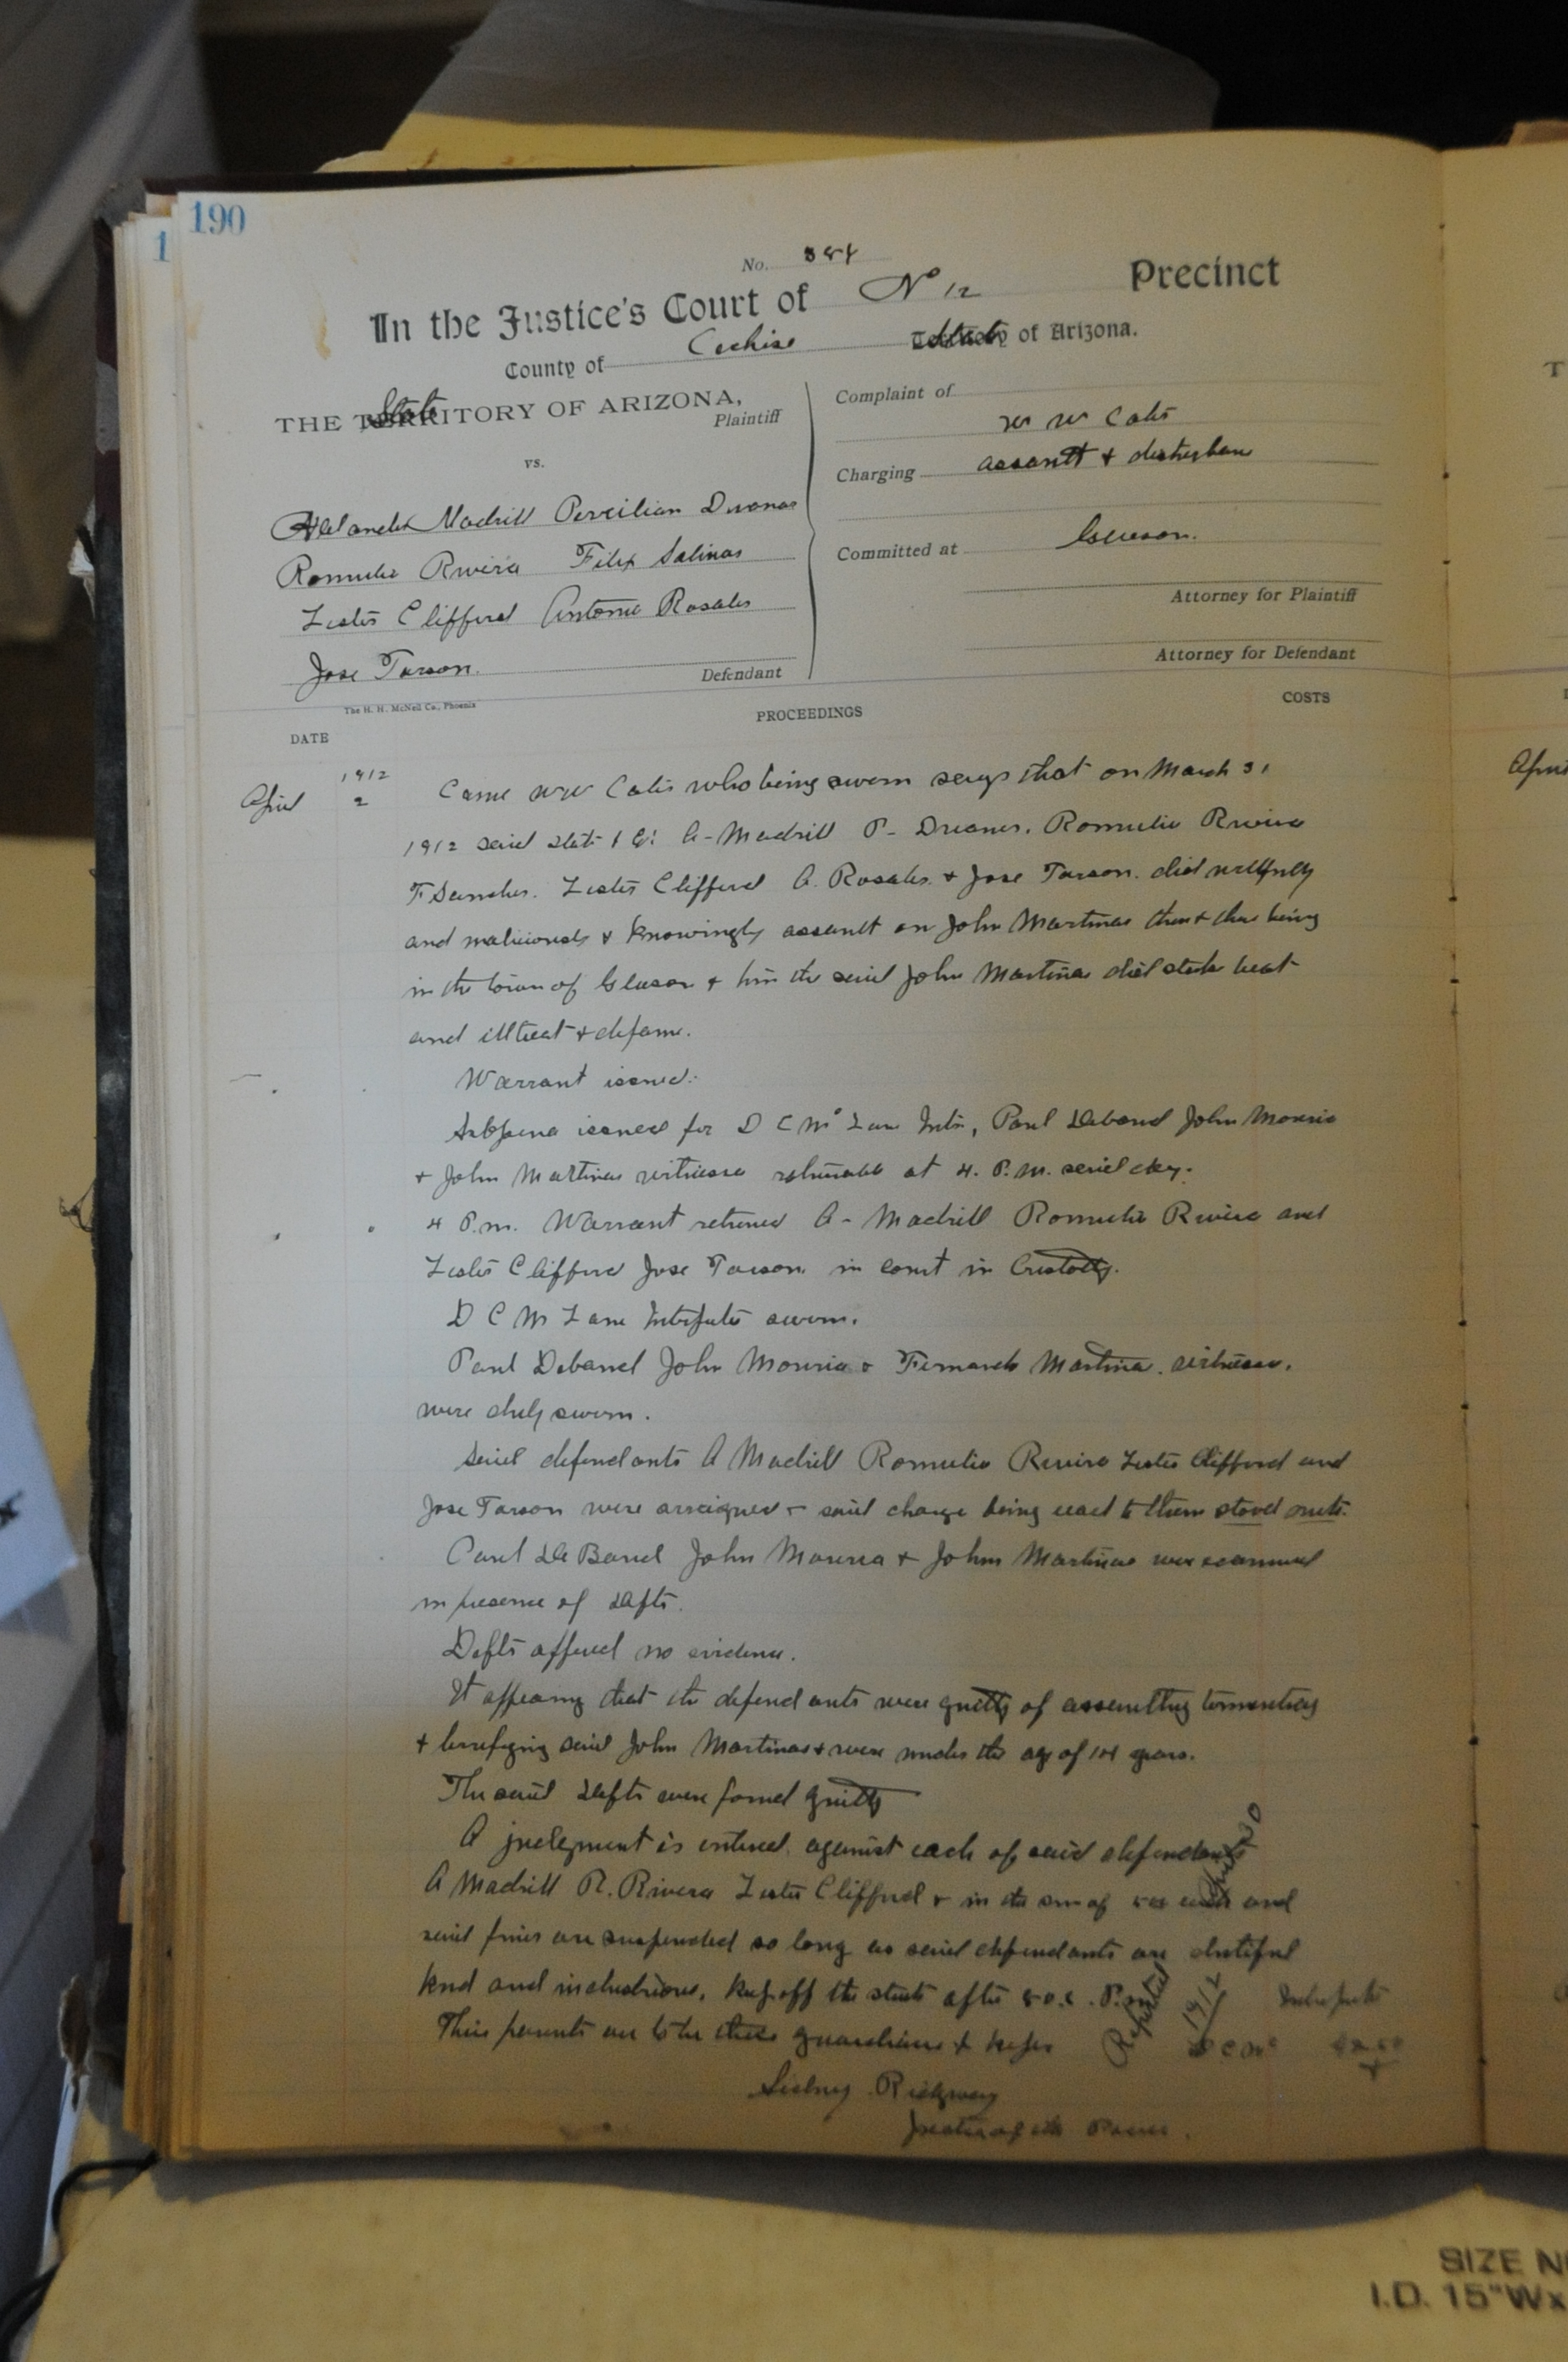 190
1
No. 384
In the Justice's Court of No 12 Precinct
County of Cochise State of Arizona.
THE State TERRITORY OF ARIZONA,
Plaintiff
vs.
Madrill
Romulio Rivera Felix Salinas
Lester Clifford Antonio Rosales
Jose Tarson.
Defendant
Complaint of
W W Cates
Charging assault & disturbance
Committed at Gleeson.
Attorney for Plaintiff
Attorney for Defendant
The H. H. McNeil Co., Phoenix
DATE
PROCEEDINGS
COSTS
1912
April 2 Came WW Cates who being sworn says that on March 31
1912 said State & Co: A-Madrill P- Romulio Rivera
F Lester Clifford A. Rosales & Jose Tarson. did willfully
and maliciously & knowingly assault on John Martinas then & there being
in the town of Gleeson & him the said John Martinas did strike beat
and illtreat & defame.
Warrant issued.
Subpoena issued for D C Mc Lane Intr, Paul Deband John Mouria
& John Martinas witnesses returnable at 4. P.M. said day.
4 P.m. Warrant returned A- Madrill Romulio Rivera and
Lester Clifford Jose Tarson in court in Custody.
D C Mc Lane Interpreter sworn.
Paul Deband John Mouria & Fernando Martina. witnesses.
were duly sworn.
Said defendants A Madrill Romulio Rivera Lester Clifford and
Jose Tarson were arraigned & said charge being read to them stood mute.
Paul De Band John Mouria & John Martinas were examined
in presence of Defts.
Defts offered no evidence.
It appearing that the defendants were guilty of assaulting tormenting
& terrifying said John Martinas & were under the age of 14 years.
The said Defts were found guilty
A judgment is entered against each of said defendants
A Madrill R. Rivera Lester Clifford & in the sum of each and
said fines are suspended so long as said defendants are dutiful
kind and industrious, keep off the streets after 8 o.c. P.m
Their parents are to be their guardians & keeper
Reported
1912
Interpreter
D C Mc
Sidney Ridgway
Justice of the Peace.
April
SIZE N
I.D. 15"Wx